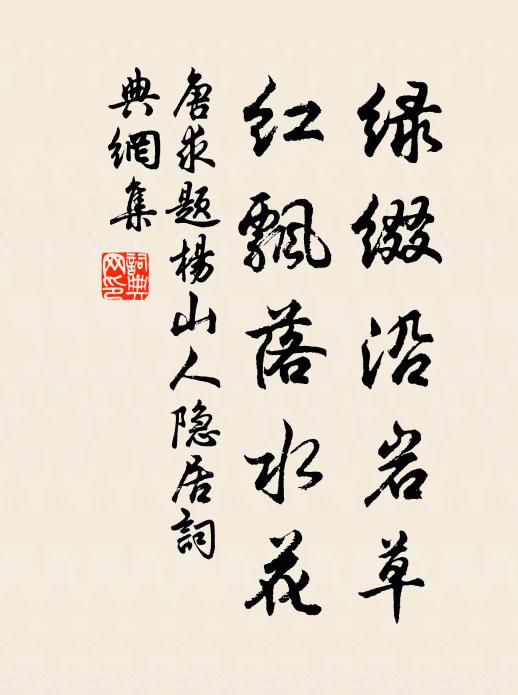 绿缀沿岩草
红飘落水花
唐求题杨山人隐居詞
典網集
詞典
网印